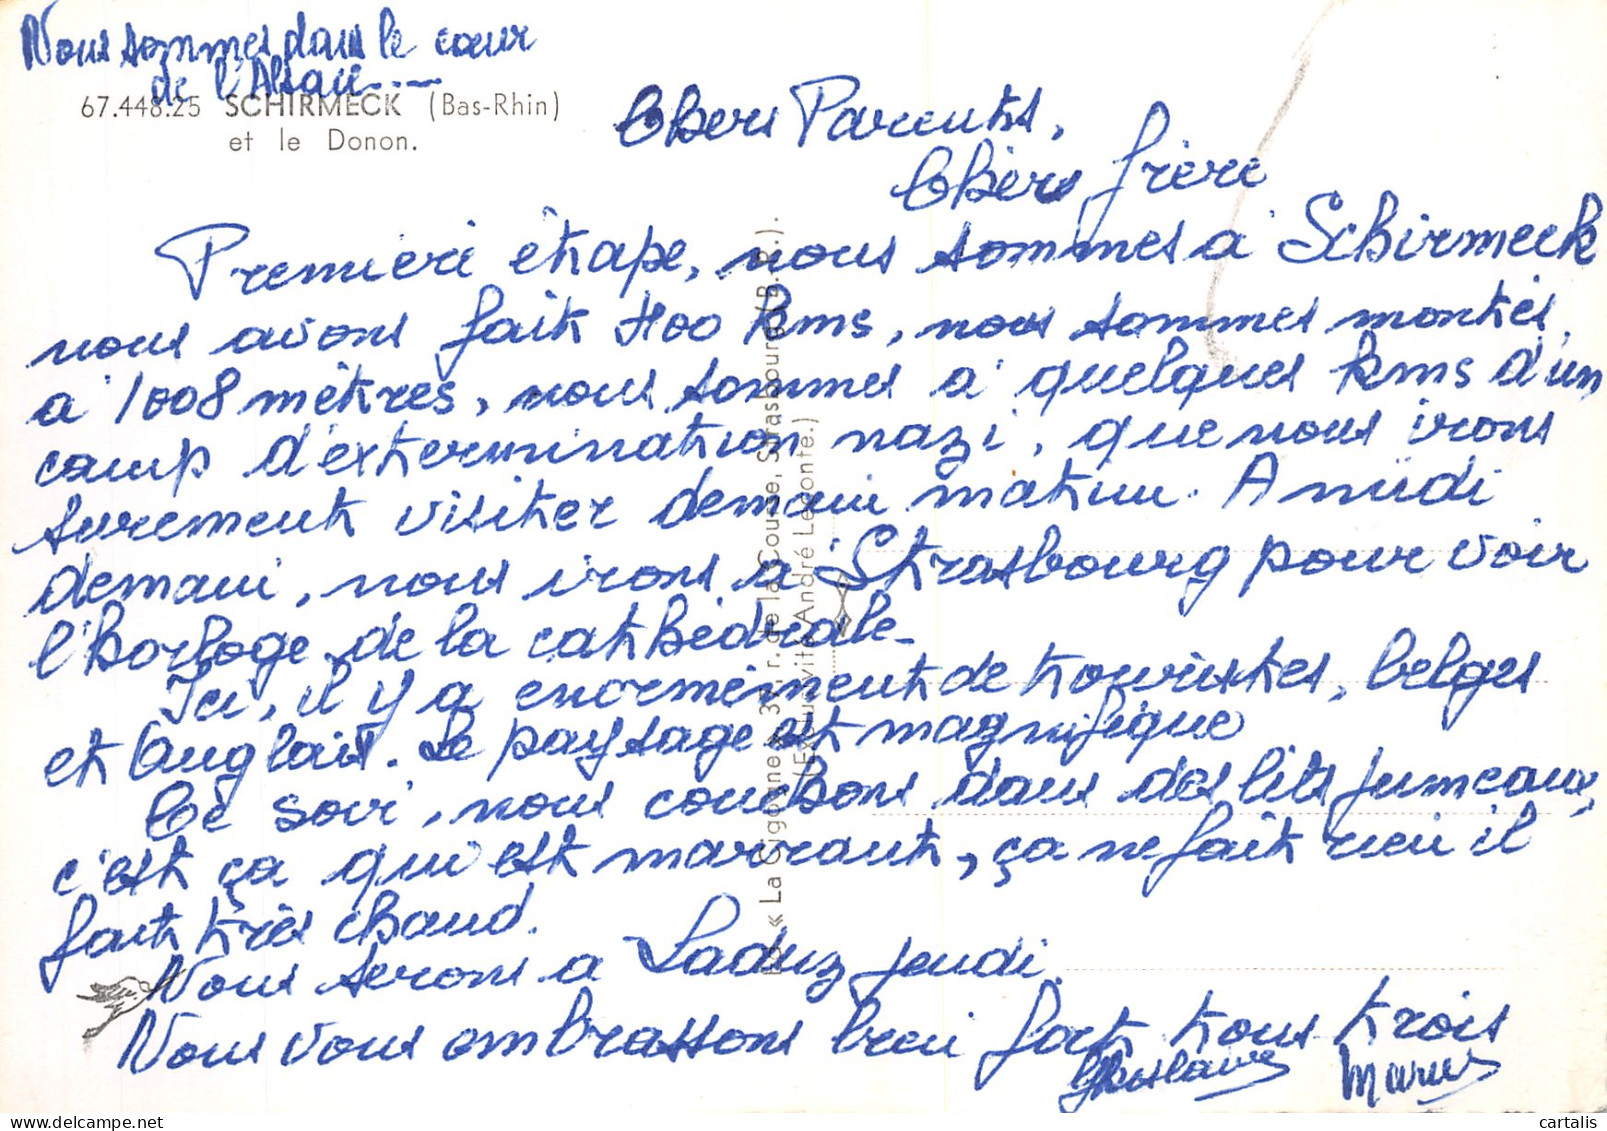 Nous sommes dans le cœur
de l'Alsace....
67.448.25 SCHIRMECK (Bas-Rhin)
et le Donon.
Chers Parents,
Chers frère
Première étape, nous sommes à Schirmeck
nous avons fait 400 kms, nous sommes montés
à 1008 mètres, nous sommes à quelques kms d'un
camp d'extermination nazi, que nous irons
surement visiter demain matin. A midi
demain, nous irons à Strasbourg pour voir
l'horloge de la cathédrale.
Ici, il y a enormément de touristes, belges
et Anglais. Le paysage est magnifique
Ce soir, nous couchons dans des lits jumeaux,
c'est ça qui est marrant, ça ne fait rien il
fait très chaud.
Nous serons a Laduz jeudi.
Nous vous embrassons bien fort tous trois
Ed « La Cigogne », 3 r. de la Course, Strasbourg (B.-R.).
(Exclusivité André Leconte.)
cartalis